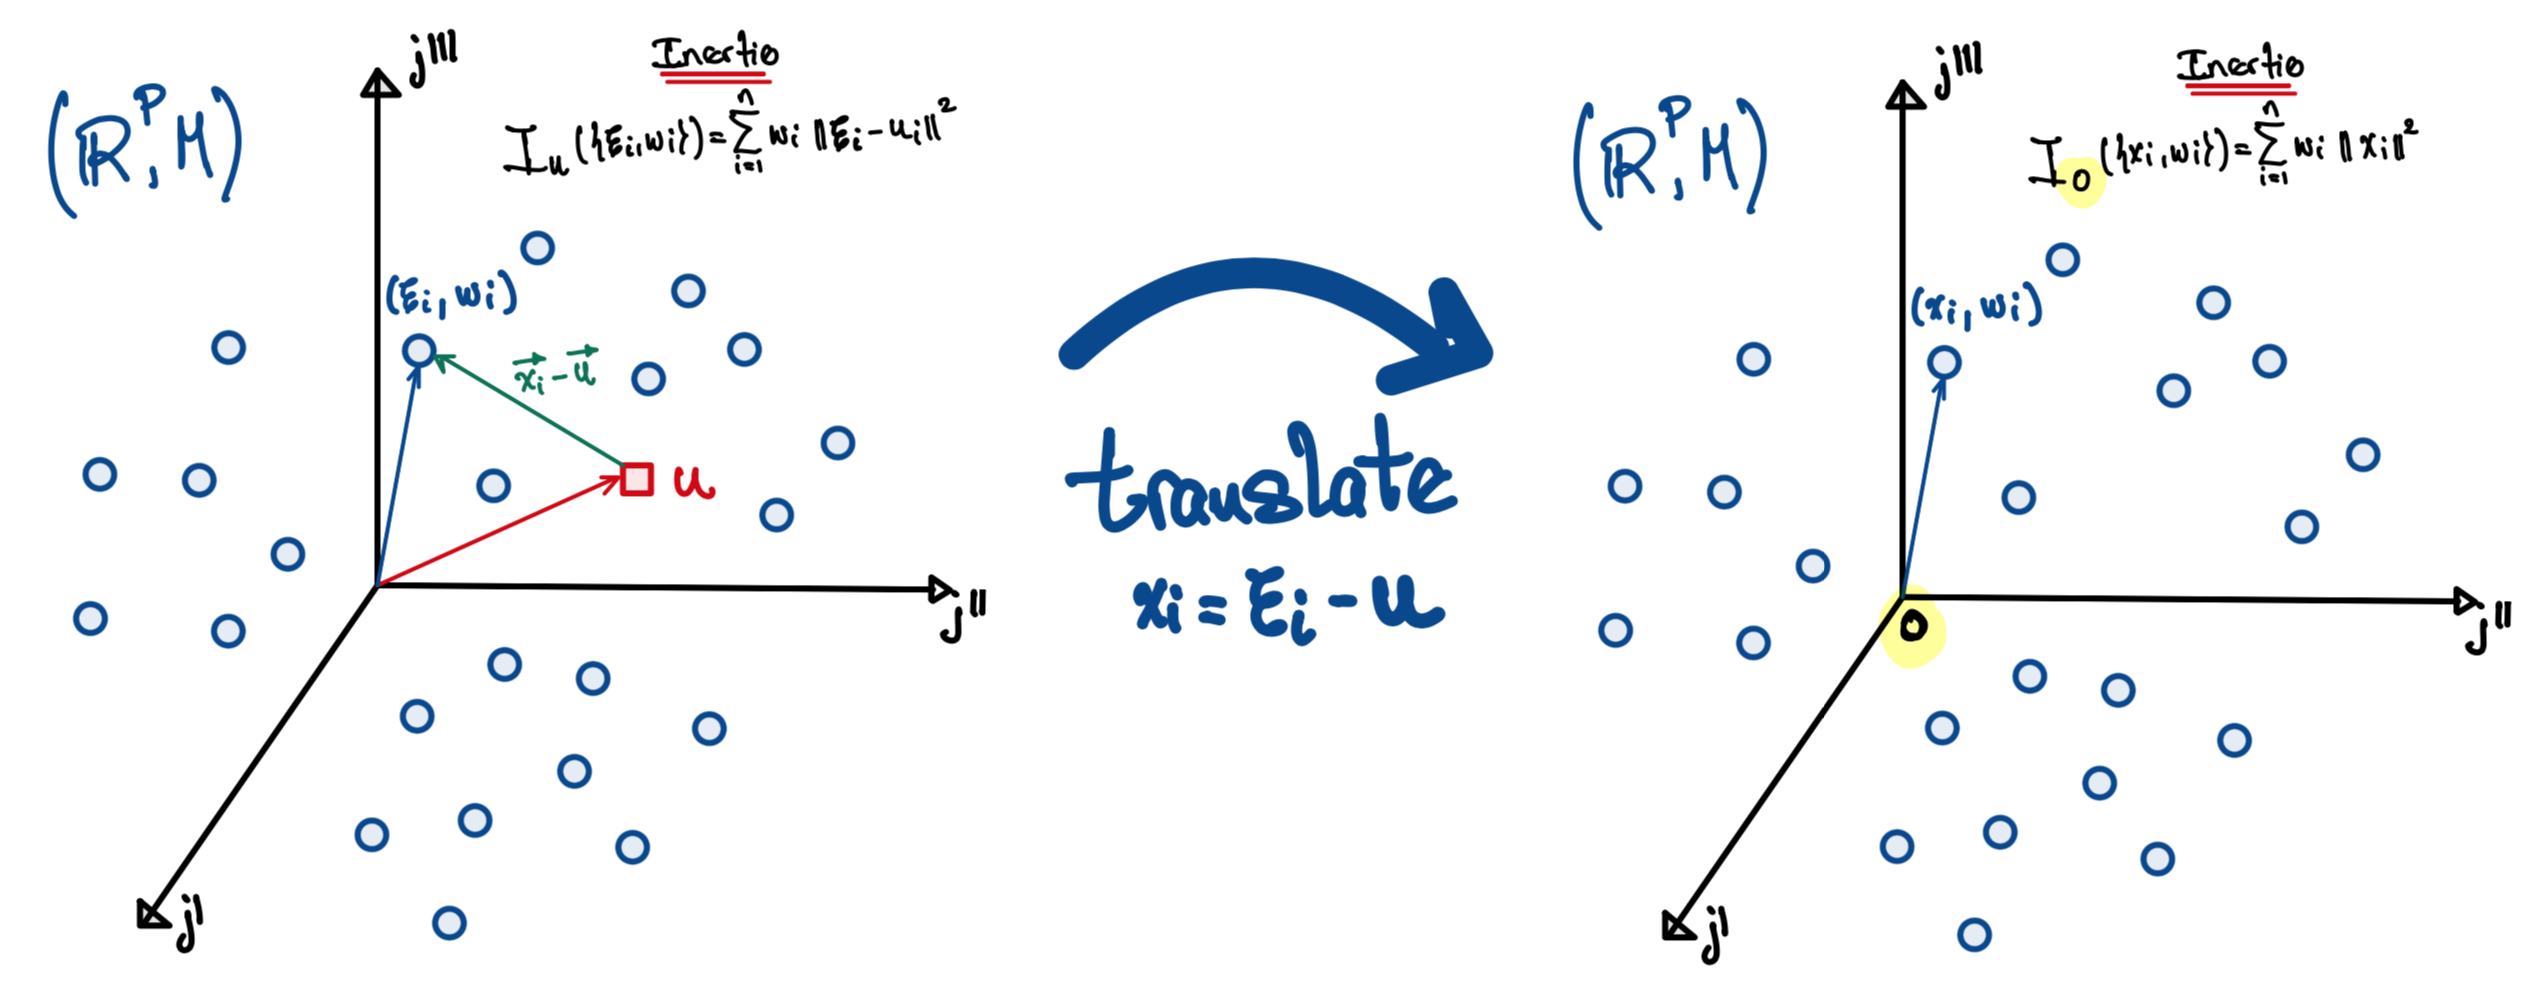 (ℝᵖ, M)
j'''
Inertia
I_u ({ξi, wi}) = Σ_{i=1}^{n} wi ‖ξi − ui‖²
(ξi, wi)
x⃗i − u⃗
u
j''
j'
translate
xi = ξi − u
(ℝᵖ, M)
j'''
Inertia
I_0 ({xi, wi}) = Σ_{i=1}^{n} wi ‖xi‖²
(xi, wi)
0
j''
j'